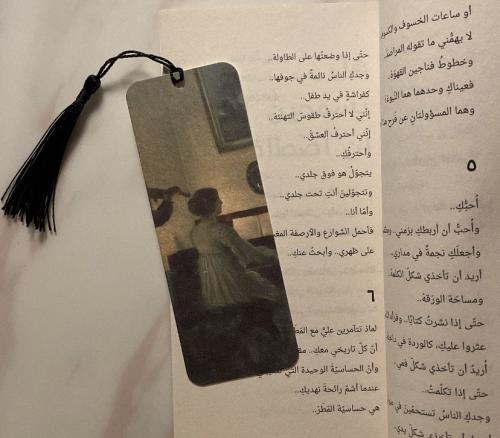 أو ساعات الخسوف
لا يهمُّني ما تقوله
وخطوطُ فناجين القهوة..
فعيناكِ وحدهما هما
وهما المسؤولتانِ عن فرح
٥
أُحبُّكِ..
وأُحبُّ أن أربطكِ بزمني..
وأجعلَكِ نجمةً في مداري..
أريد أن تأخذي شكلَ الكلمة
ومساحةَ الورقة..
حتّى إذا نشرتُ كتابًا..
عثروا عليكِ، كالوردة في
أُريدُ أن تأخذي شكلَ فمي..
حتّى إذا تكلّمتُ..
وجدكِ الناسُ تستحمّين في
أن تأخذي شكلَ يدي..
حتّى إذا وضعتُها على الطاولة..
وجدكِ الناسُ نائمةً في جوفها..
كفراشةٍ في يد طفل..
إنّني لا أحترفُ طقوسَ التهنئة..
إنّني أحترفُ العشقَ..
وأحترفُكِ..
يتجوّلُ هو فوق جلدي..
وتتجوّلينَ أنتِ تحت جلدي..
وأمّا أنا..
فأحمل الشوارع والأرصفة
على ظهري.. وأبحثُ عنكِ..
٦
لماذا تتآمرين عليَّ مع
أنّ كلّ تاريخي معكِ..
وأنّ الحساسيّةَ الوحيدة التي
عندما أشمّ رائحةَ نهديكِ..
هي حساسيّة القطَرْ..